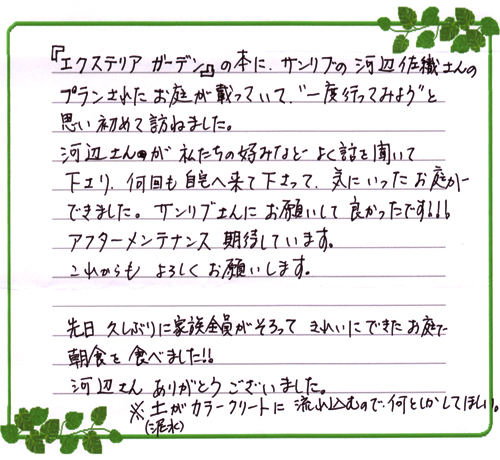 『エクステリア ガーデン』の本に、サンリブの河辺佐織さんの
プランされたお庭が載っていて、"一度行ってみよう"と
思い初めて訪ねました。
河辺さんが 私たちの好みなど よく話を聞いて
下さり、何回も自宅へ来て下さって、気にいったお庭が
できました。サンリブさんにお願いして良かったです!!!
アフターメンテナンス 期待しています。
これからも よろしくお願いします。
先日 久しぶりに家族全員がそろって きれいにできたお庭で
朝食を食べました!!
河辺さん ありがとうございました。
※ 土がカラークリートに 流れ込むので、何とかしてほしい。
(泥水)